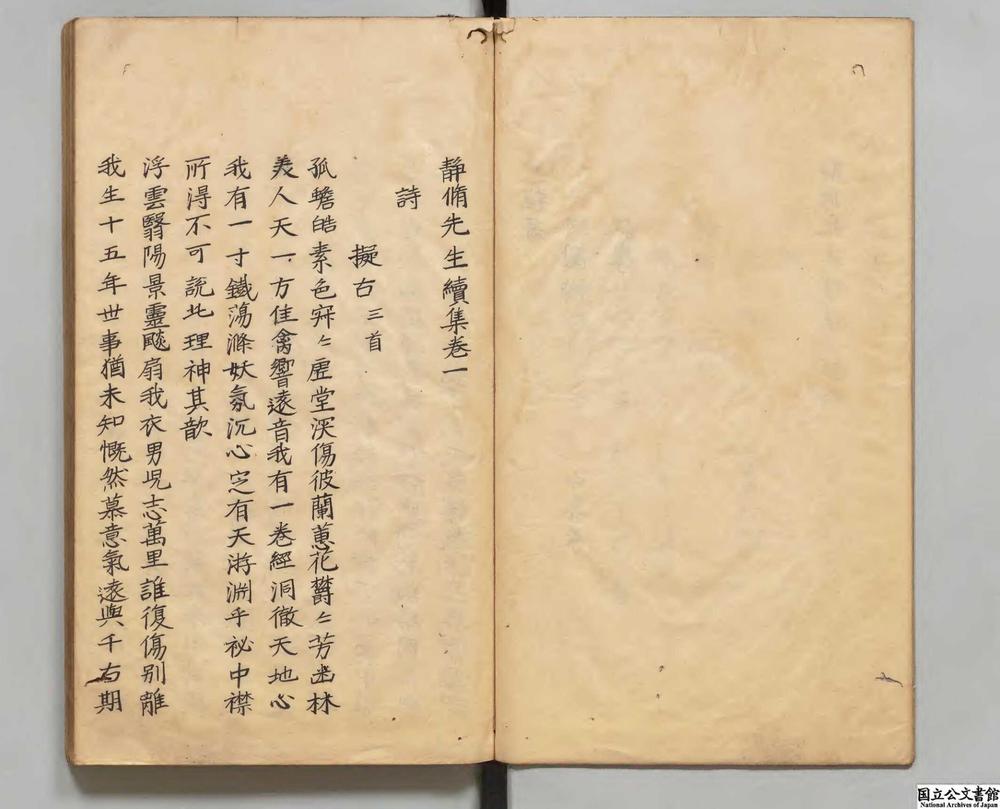 静脩先生續集巻一
詩
擬古三首
孤蟾皓素色冞〻虚堂深傷彼蘭蕙花欝〻芳幽林
美人天一方佳禽響遠音我有一巻經洞徹天地心
我有一寸鐵蕩滌妖氛沉心定有天游渊乎祕中襟
所得不可說此理神其歆
浮雲翳陽景靈飈扇我衣男児志萬里誰復傷别離
我生十五年世事猶未知慨然慕意氣遠與千古期
国立公文書館
National Archives of Japan